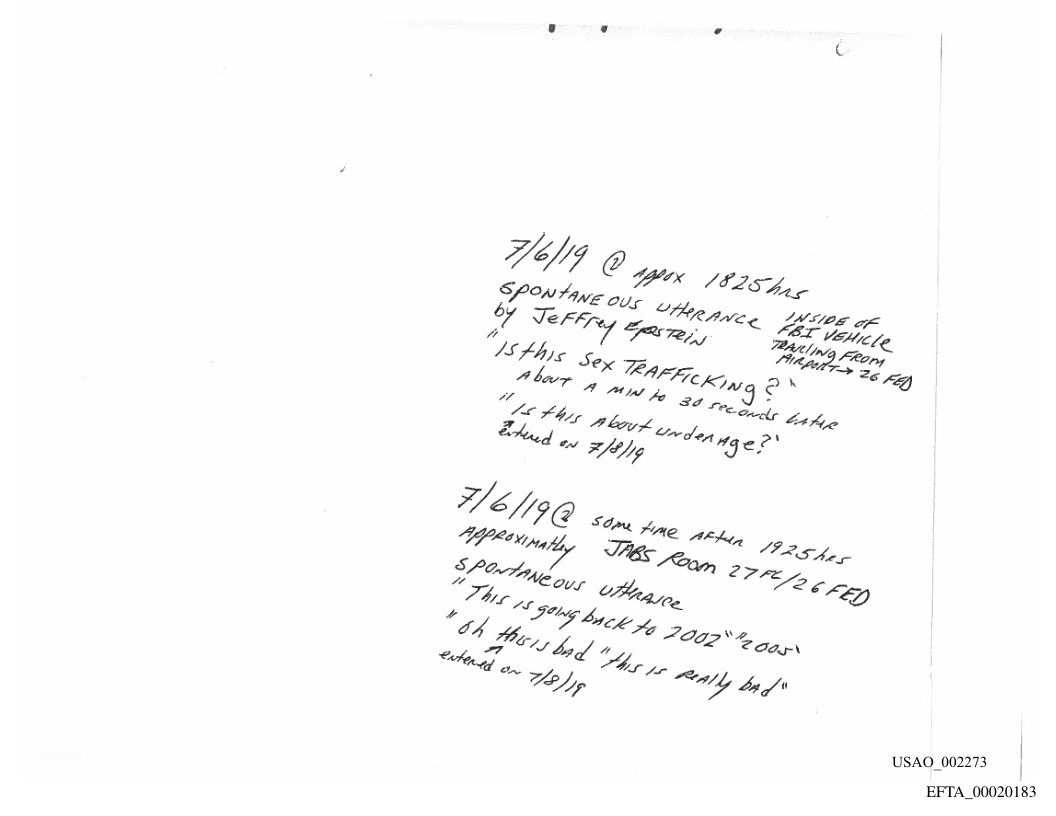 7/6/19 @ Appox 1825hrs
SPONTANEOUS UttERANCe INSIDE OF
by JeFFrey EPSTEIN FBI VEHICLE
TRAILING FROM
AIRPORT → 26 FED
"Is this Sex TRAFFICKING?"
About A MIN to 30 seconds LATER
"Is this About underAge?"
entered on 7/8/19
7/6/19 @ some time AFter 1925hrs
APPROXIMAtley JABS Room 27FL/26 FED
SPONTANEOUS UttERANCe
"This is going back to 2002" "2005"
"Oh this is bad "this is REAlly bad"
entered on 7/8/19
USAO_002273
EFTA_00020183